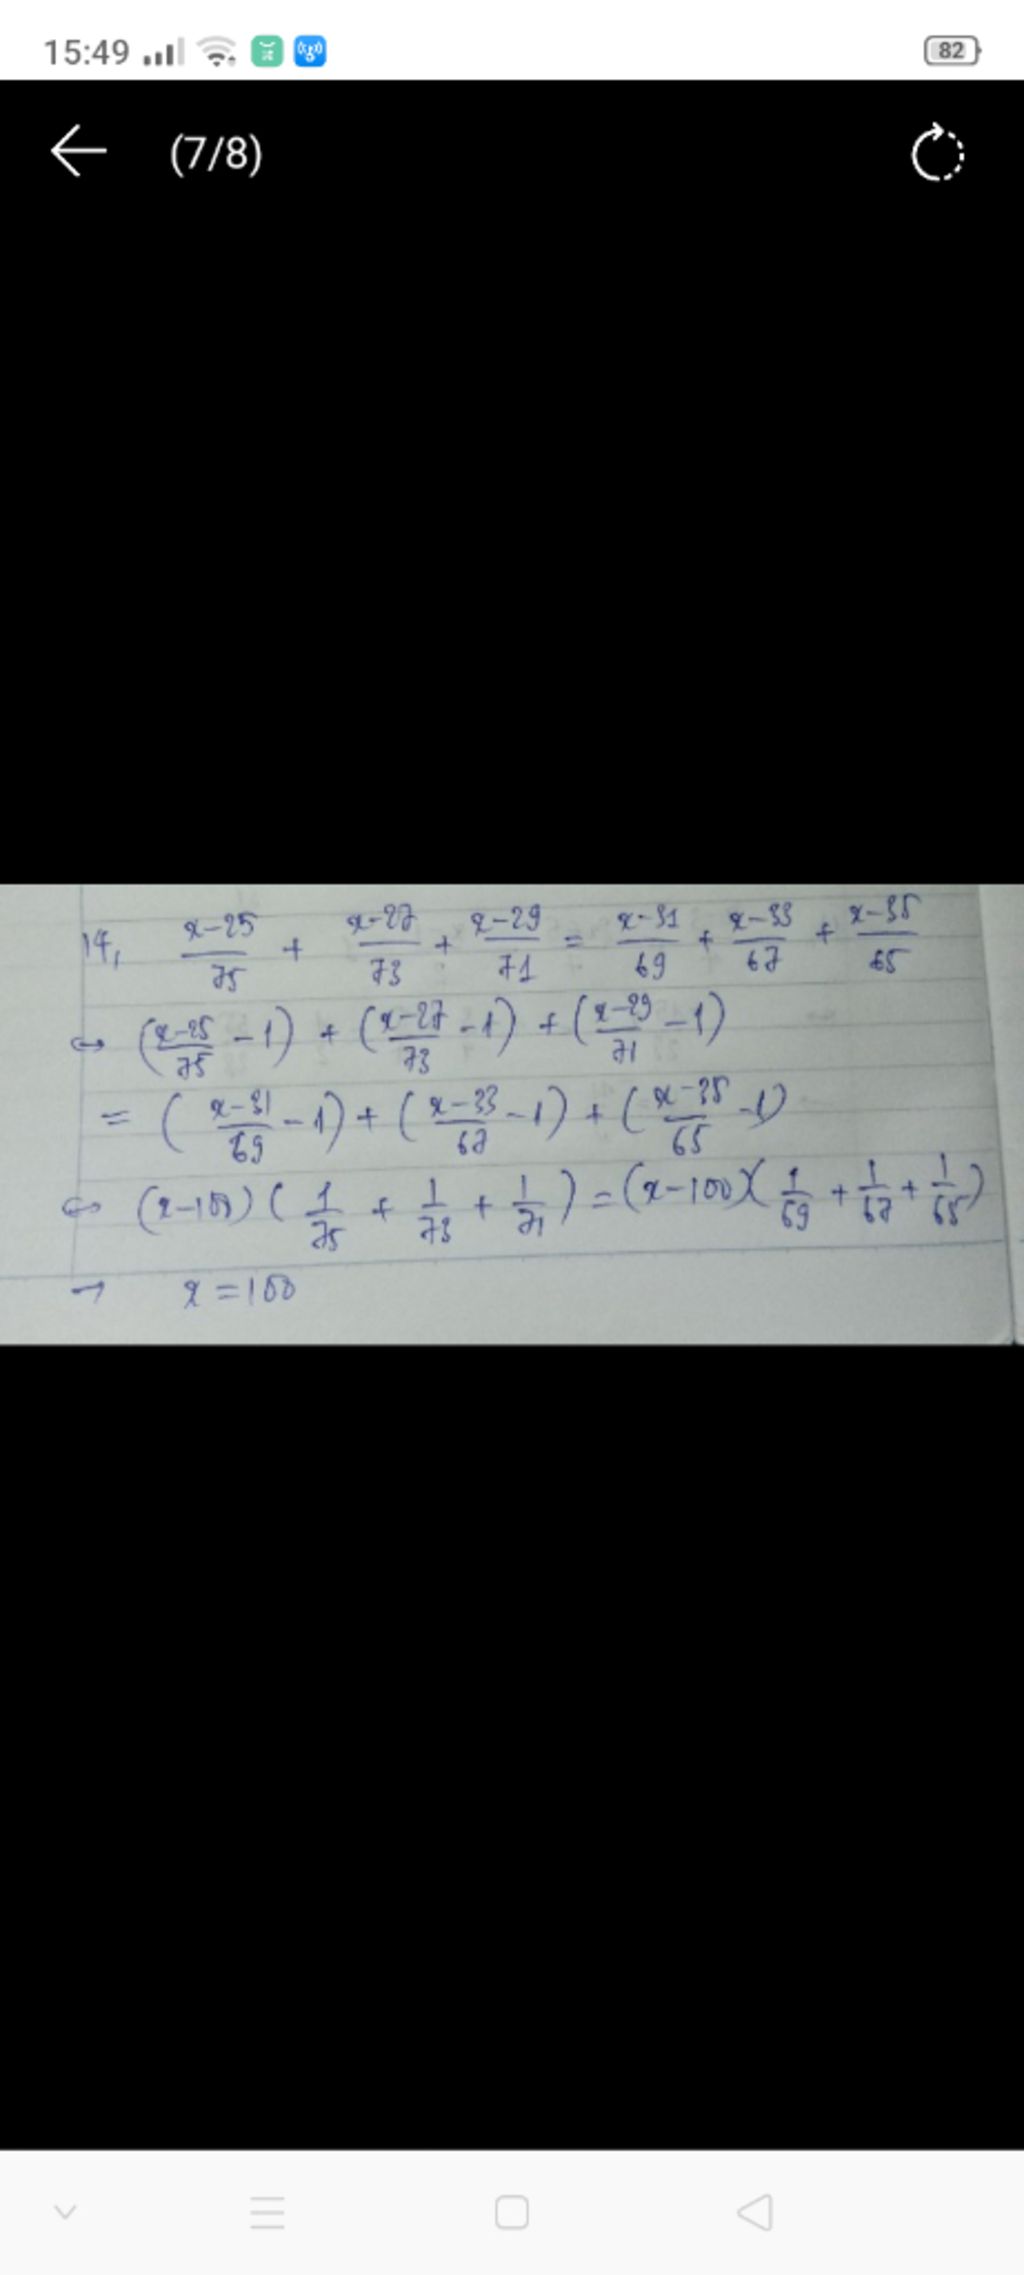 15:49 82
(7/8)
14, x-25/75 + x-27/73 + x-29/71 = x-31/69 + x-33/67 + x-35/65
⇔ (x-25/75 - 1) + (x-27/73 - 1) + (x-29/71 - 1)
= (x-31/69 - 1) + (x-33/67 - 1) + (x-35/65 - 1)
⇔ (x-100) (1/75 + 1/73 + 1/71) = (x-100)(1/69 + 1/67 + 1/65)
→ x = 100